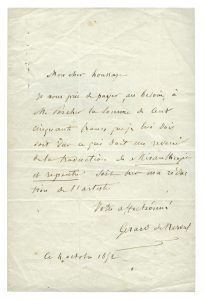 Mon cher houssaye
Je vous prie de payer, au besoin, à
M. Porcher la somme de cent
cinquante francs que je lui dois
soit sur ce qui doit me revenir
de la traduction de Misanthropie
et repentir soit sur ma rédac
tion de l'artiste
Votre affectionné
Gérard de Nerval
Ce 4 octobre 1852